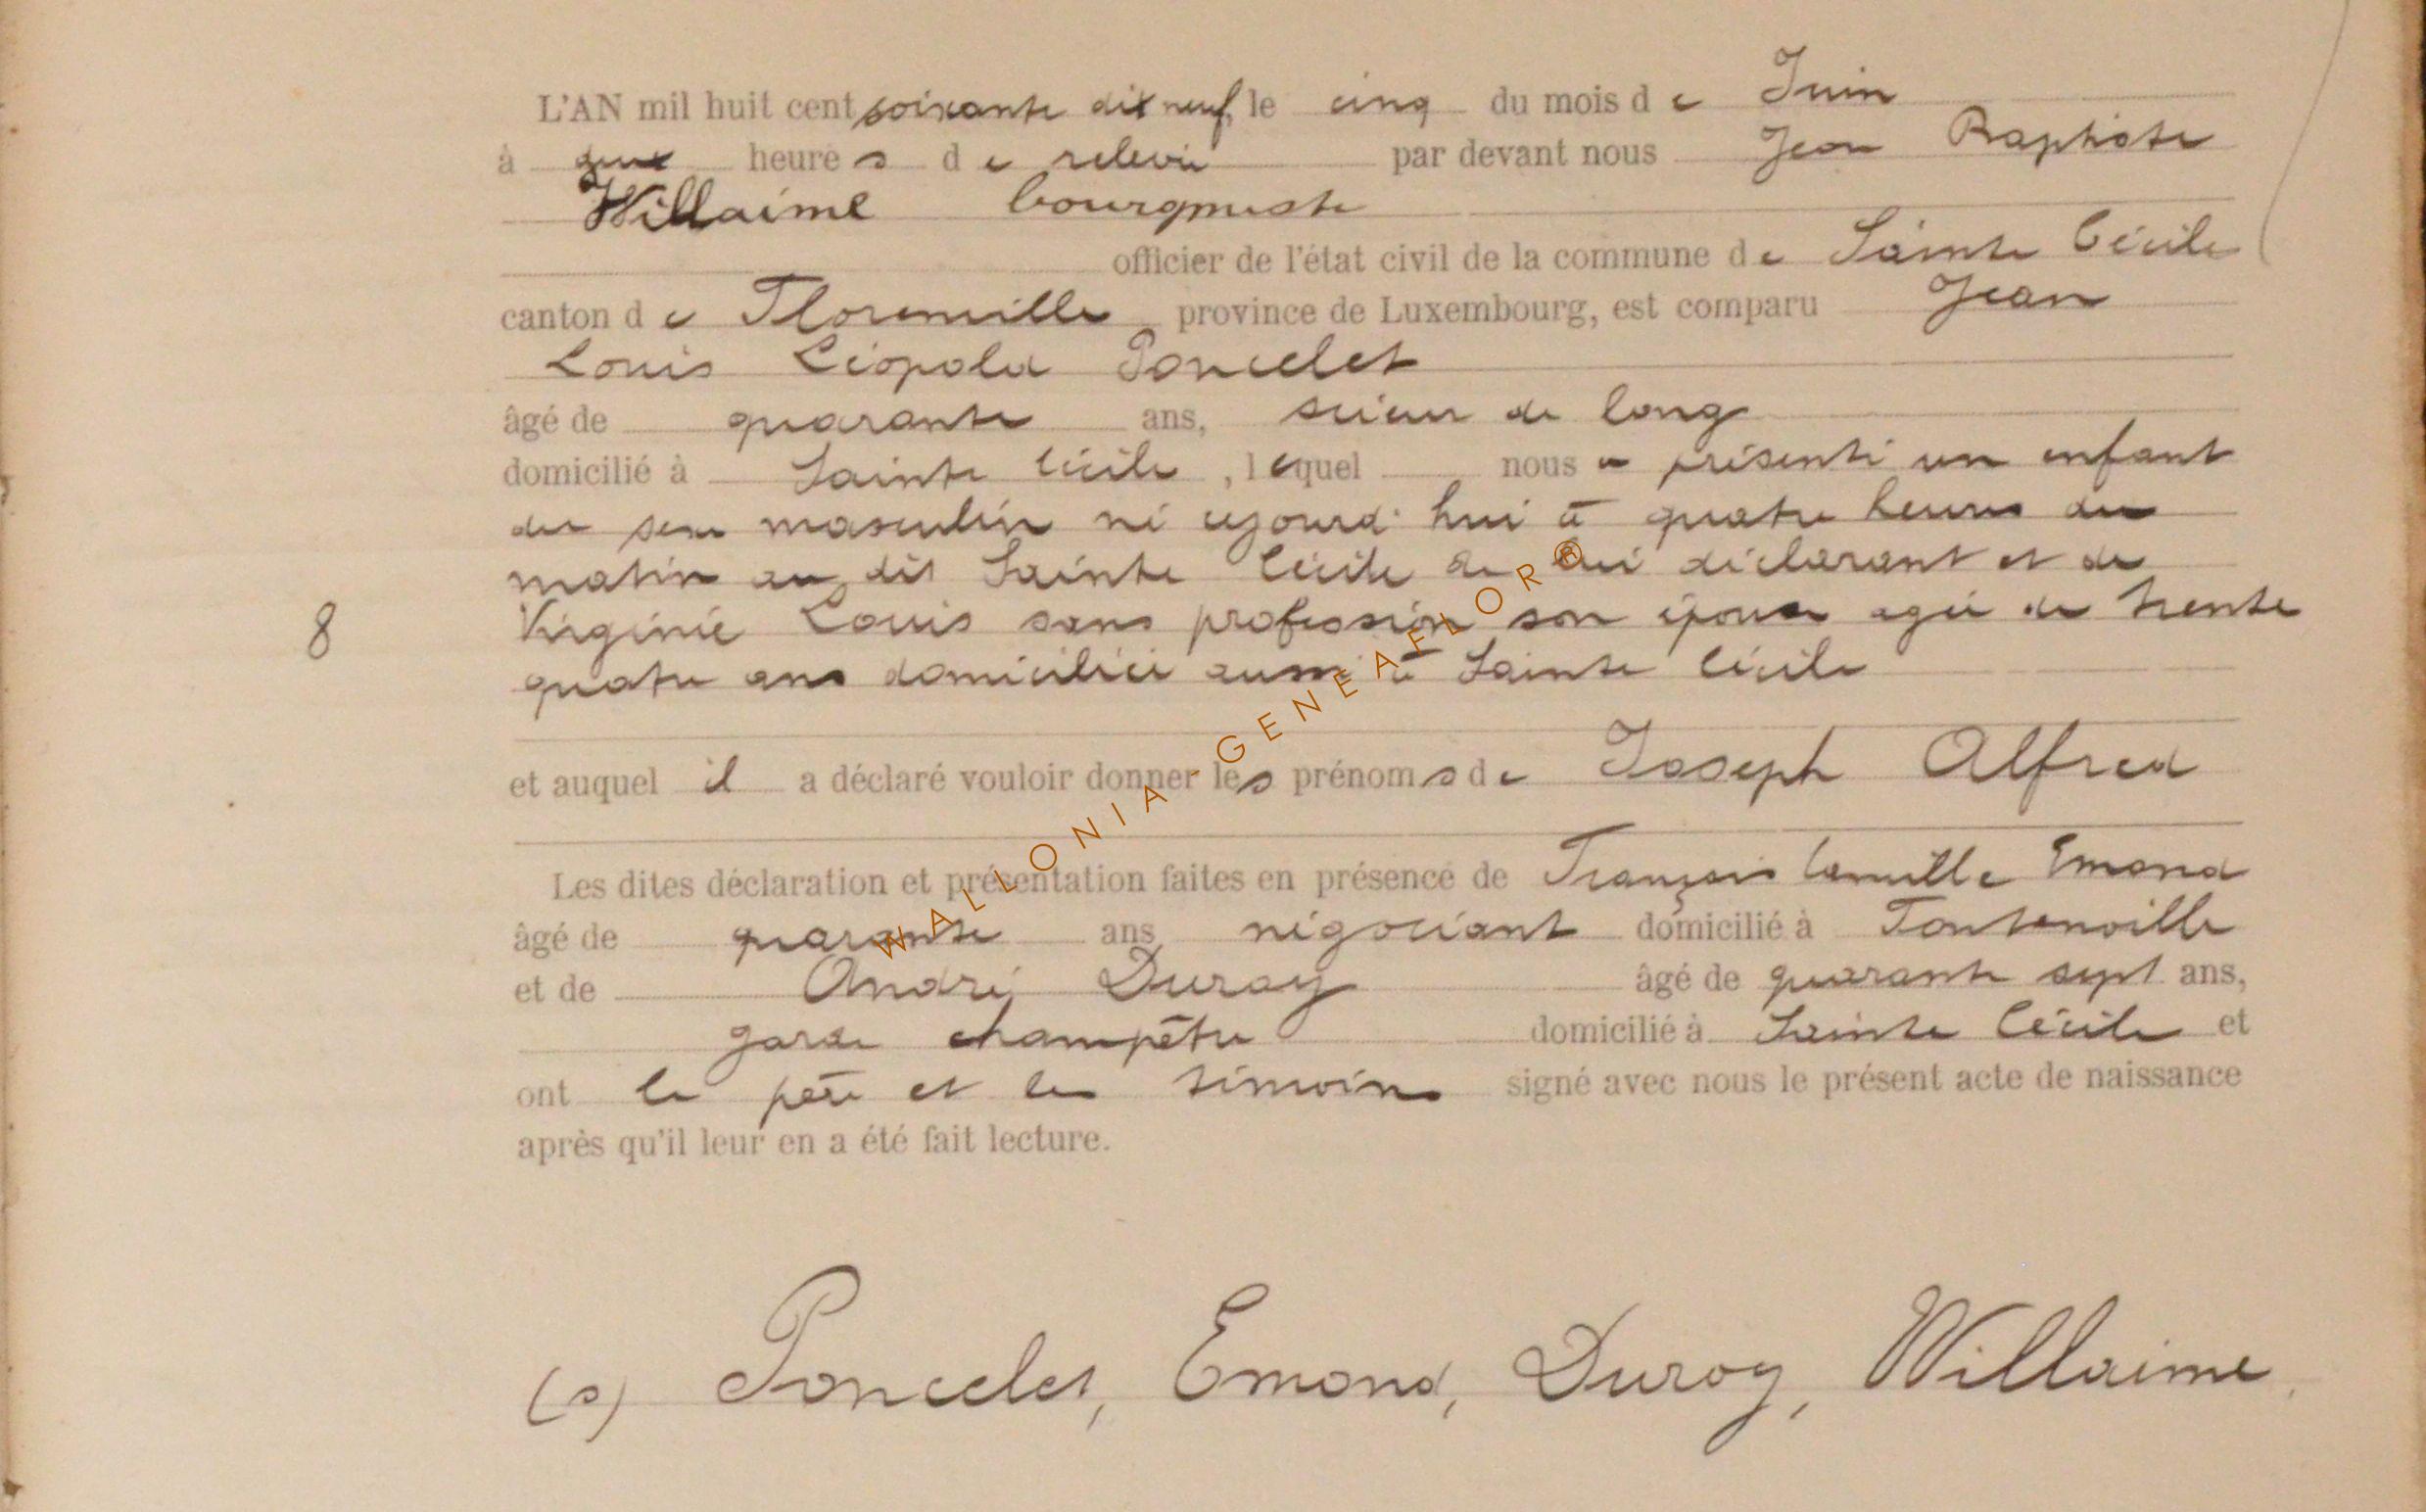 L'AN mil huit cent soixante dix neuf, le cinq du mois de Juin
à heures de relevée par devant nous Jean Baptiste
Willaime bourgmestre
officier de l'état civil de la commune de Sainte Cécile
canton de Florenville province de Luxembourg, est comparu Jean
Louis Léopold Poncelet
âgé de quarante ans, scieur de long
domicilié à Sainte Cécile, lequel nous a présenté un enfant
du sexe masculin né cejourd'hui à quatre heures du
matin au dit Sainte Cécile de lui déclarant et de
Virginie Louis sans profession son épouse agée de trente
quatre ans domiciliée aussi à Sainte Cécile
8
et auquel il a déclaré vouloir donner les prénoms de Joseph Alfred
Les dites déclaration et présentation faites en présence de François Camille Emond
âgé de quarante ans négociant domicilié à Fontenoille
et de André Duroy âgé de quarante sept ans,
garde champêtre domicilié à Sainte Cécile et
ont le père et les témoins signé avec nous le présent acte de naissance
après qu'il leur en a été fait lecture.
(s) Poncelet, Emond, Duroy, Willaime.
WALLONIA-GENEAFLOR®